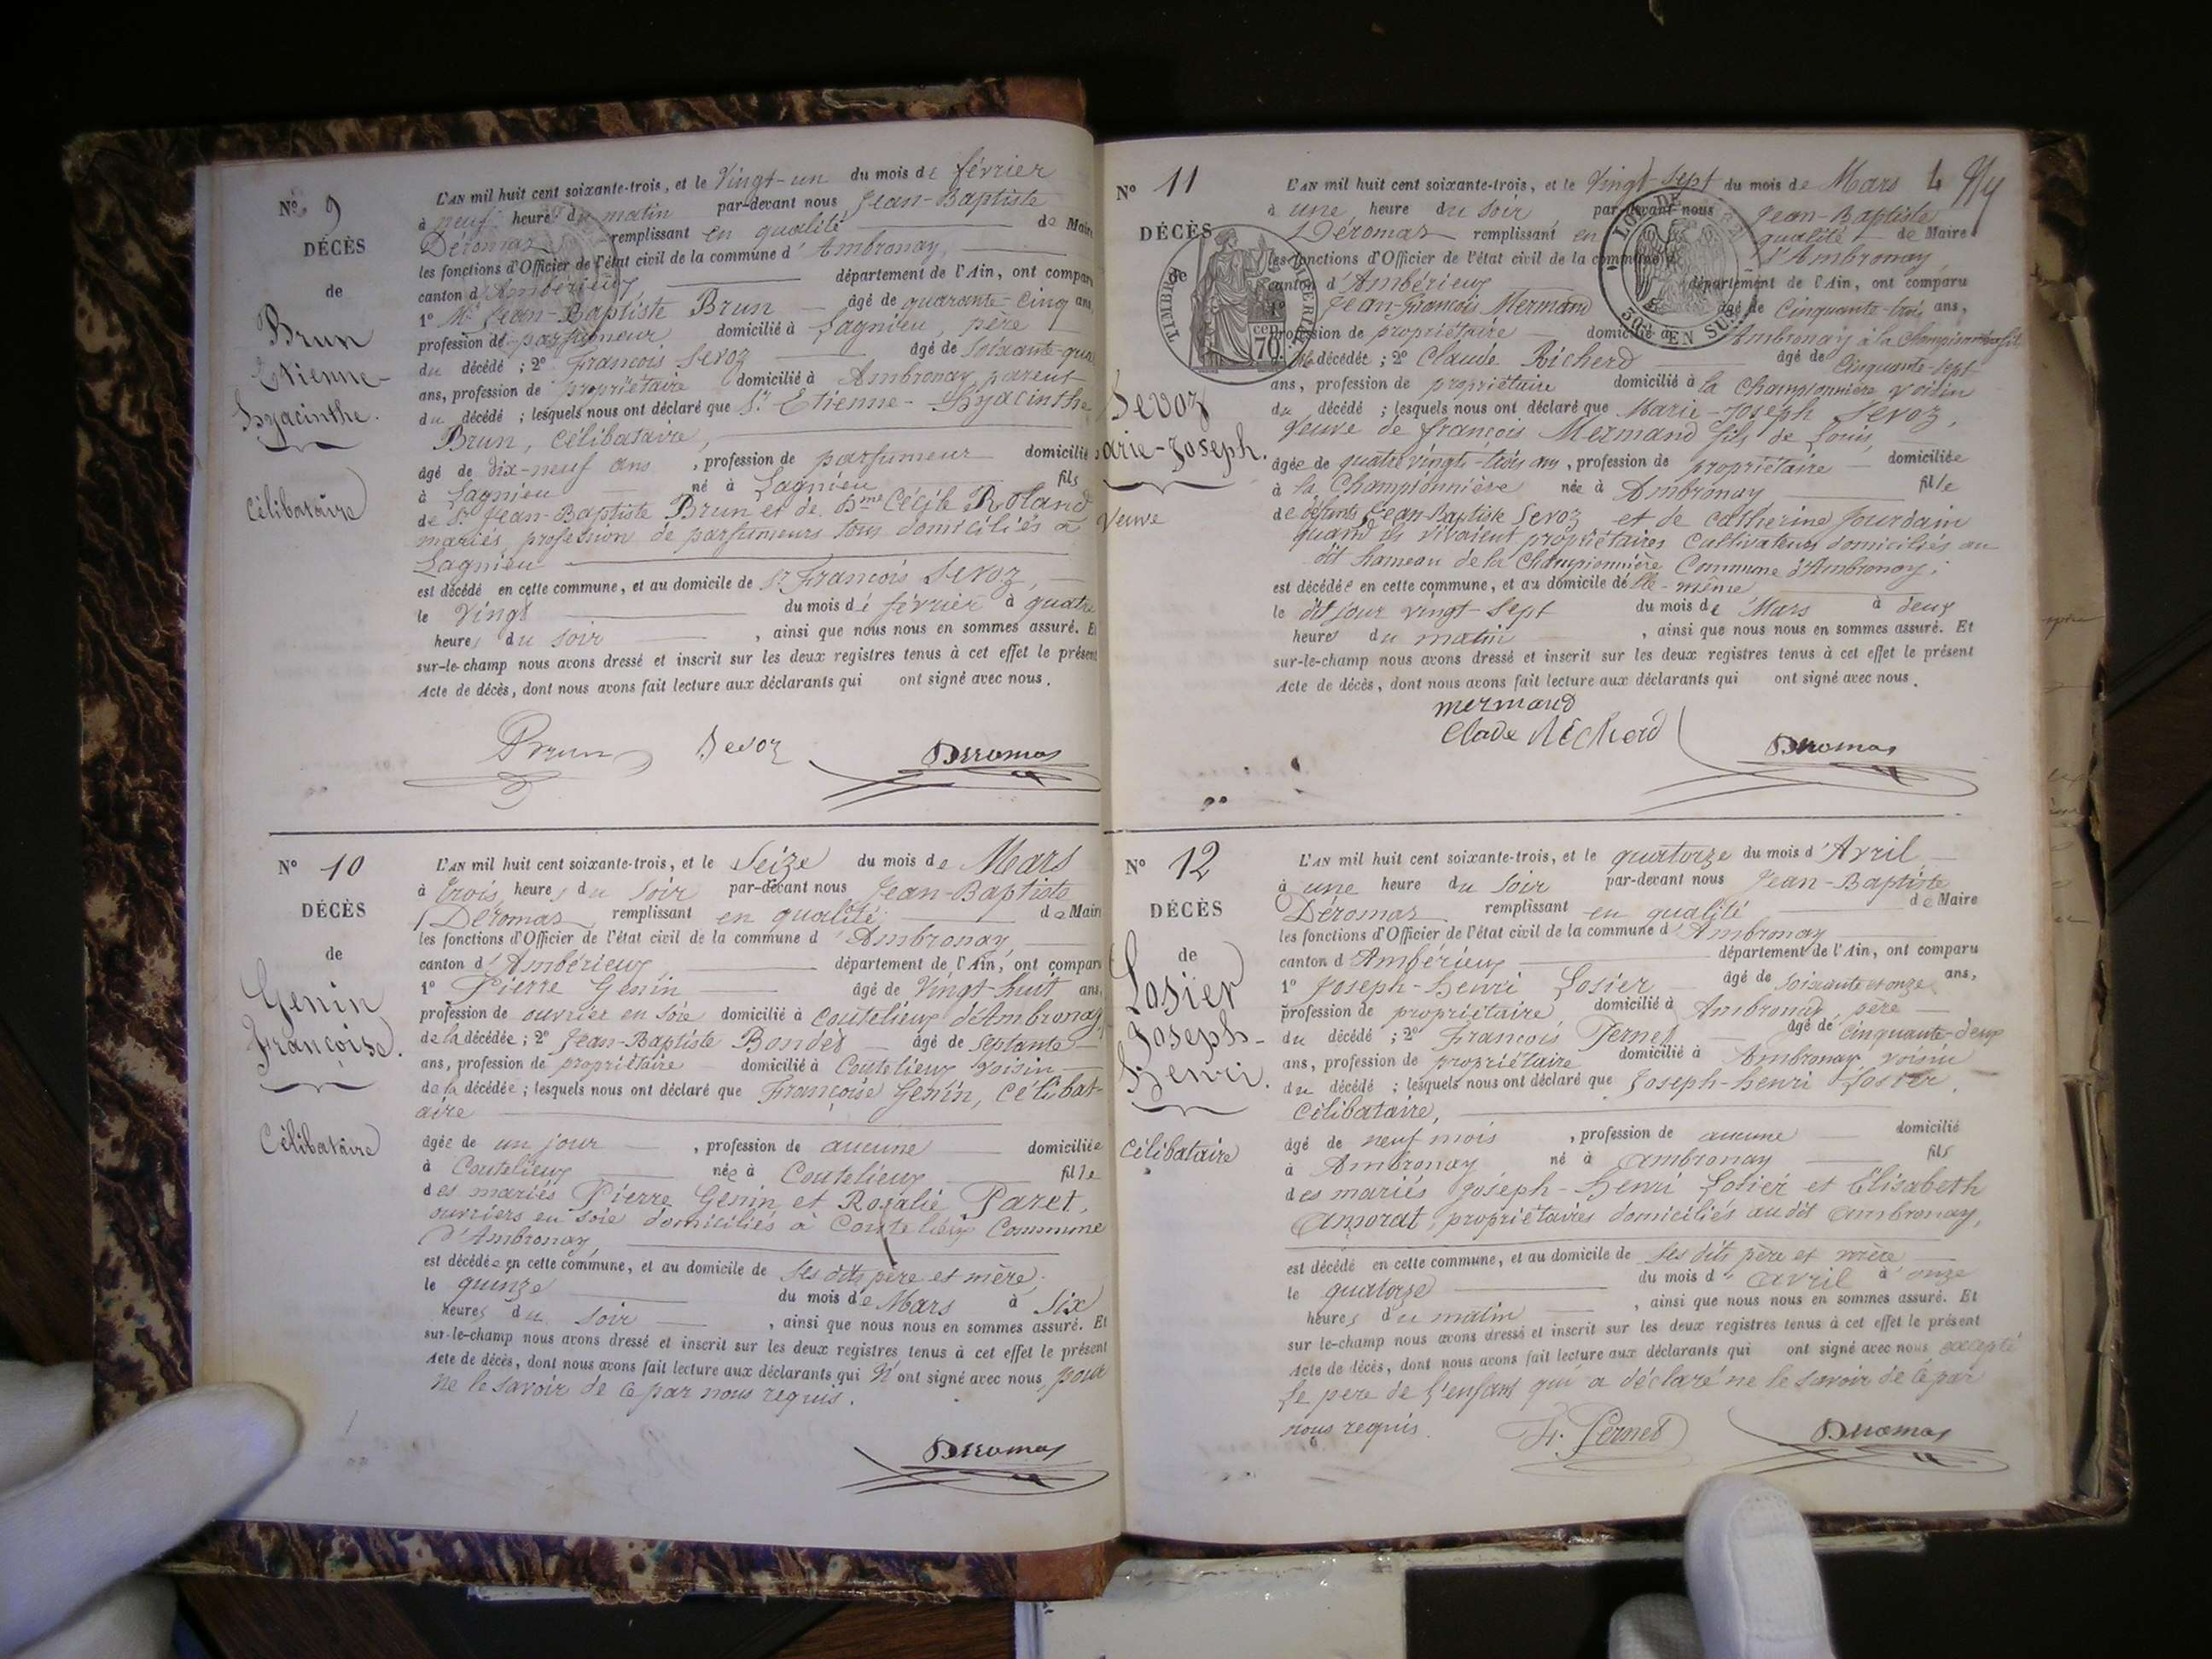 N° 9
DÉCÈS
de
Brun
Etienne-
Hyacinthe.
Célibataire
L'AN mil huit cent soixante-trois, et le Vingt-un du mois de février
à neuf heures du matin par-devant nous Jean-Baptiste
Déromas remplissant en qualité de Maire
les fonctions d'Officier de l'état civil de la commune d'Ambronay,
canton d'Ambérieux département de l'Ain, ont comparu
1° Mr Jean-Baptiste Brun âgé de quarante-cinq ans,
profession de parfumeur domicilié à Lagnieu, père
du décédé ; 2° François Sevoz âgé de soixante-qua
ans, profession de propriétaire domicilié à Ambronay parent
du décédé ; lesquels nous ont déclaré que Sr Etienne-Hyacinthe
Brun, célibataire,
âgé de dix-neuf ans, profession de parfumeur domicilié
à Lagnieu né à Lagnieu fils
de Sr Jean-Baptiste Brun et de Dme Cécile Roland
mariés, profession de parfumeurs tous domiciliés à
Lagnieu
est décédé en cette commune, et au domicile de Sr François Sevoz,
le Vingt du mois de février à quatre
heures du soir, ainsi que nous nous en sommes assuré. Et
sur-le-champ nous avons dressé et inscrit sur les deux registres tenus à cet effet le présent
Acte de décès, dont nous avons fait lecture aux déclarants qui ont signé avec nous.
Brun Sevoz Deromas
N° 10
DÉCÈS
de
Genin
Françoise.
Célibataire
L'AN mil huit cent soixante-trois, et le Seize du mois de Mars
à trois heures du soir par-devant nous Jean-Baptiste
Déromas remplissant en qualité de Maire
les fonctions d'Officier de l'état civil de la commune d'Ambronay,
canton d'Ambérieux département de l'Ain, ont comparu
1° Pierre Genin âgé de Vingt-huit ans,
profession de ouvrier en soie domicilié à Coutelieux d'Ambronay,
de la décédée ; 2° Jean-Baptiste Bondet âgé de septante
ans, profession de propriétaire domicilié à Coutelieux voisin
de la décédée ; lesquels nous ont déclaré que Françoise Genin, célibat-
aire
âgée de un jour, profession de aucune domiciliée
à Coutelieux née à Coutelieux fille
des mariés Pierre Genin et Rosalie Paret,
ouvriers en soie domiciliés à Coutelieux Commune
d'Ambronay
est décédée en cette commune, et au domicile de ses dits père et mère,
le quinze du mois de Mars à Six
heures du soir, ainsi que nous nous en sommes assuré. Et
sur-le-champ nous avons dressé et inscrit sur les deux registres tenus à cet effet le présent
Acte de décès, dont nous avons fait lecture aux déclarants qui n'ont signé avec nous, pour
ne le savoir de ce par nous requis.
Deromas
N° 11
DÉCÈS
de
Sevoz
arie-Joseph.
Veuve
TIMBRE IMPÉRIAL
70 cen
LOI DE
50e EN SUS
L'AN mil huit cent soixante-trois, et le Vingt-Sept du mois de Mars 4
à une heure du soir par-devant nous Jean-Baptiste
Déromas remplissant en qualité de Maire
les fonctions d'Officier de l'état civil de la commune d'Ambronay
canton d'Ambérieux département de l'Ain, ont comparu
1° Jean-François Mermand âgé de Cinquante-trois ans,
profession de propriétaire domicilié à Ambronay à la Championnière fils
de la décédée ; 2° Claude Richerd âgé de Cinquante-sept
ans, profession de propriétaire domicilié à la Championnière voisin
du décédé ; lesquels nous ont déclaré que Marie-Joseph Sevoz,
Veuve de françois Mermand fils de Louis,
âgée de quatre vingts-trois ans, profession de propriétaire domiciliée
à la Championnière née à Ambronay fille
de défunts Jean-Baptiste Sevoz et de Catherine Jourdain
quand ils vivaient propriétaires Cultivateurs domiciliés au
dit hameau de la Championnière Commune d'Ambronay,
est décédée en cette commune, et au domicile de elle-même
le dit jour vingt-sept du mois de Mars à deux
heures du matin, ainsi que nous nous en sommes assuré. Et
sur-le-champ nous avons dressé et inscrit sur les deux registres tenus à cet effet le présent
Acte de décès, dont nous avons fait lecture aux déclarants qui ont signé avec nous.
mermand
Clade Richerd Deromas
N° 12
DÉCÈS
de
Losier
Joseph-
Henri.
Célibataire
L'AN mil huit cent soixante-trois, et le quatorze du mois d'Avril
à une heure du soir par-devant nous Jean-Baptiste
Déromas remplissant en qualité de Maire
les fonctions d'Officier de l'état civil de la commune d'Ambronay
canton d'Ambérieux département de l'Ain, ont comparu
1° Joseph-henri Losier âgé de soixante et onze ans,
profession de propriétaire domicilié à Ambronay père
du décédé ; 2° François Pernet âgé de cinquante-deux
ans, profession de propriétaire domicilié à Ambronay voisin
du décédé ; lesquels nous ont déclaré que Joseph-henri Losier,
célibataire,
âgé de neuf mois, profession de aucune domicilié
à Ambronay né à Ambronay fils
des mariés Joseph-Henri Losier et Elisabeth
Amorat, propriétaires domiciliés audit Ambronay,
est décédé en cette commune, et au domicile de ses dits père et mère
le quatorze du mois d'avril à onze
heures du matin, ainsi que nous nous en sommes assuré. Et
sur le-champ nous avons dressé et inscrit sur les deux registres tenus à cet effet le présent
Acte de décès, dont nous avons fait lecture aux déclarants qui ont signé avec nous excepté
le père de l'enfant qui a déclaré ne le savoir de ce par
nous requis. Fr. Pernet Deromas